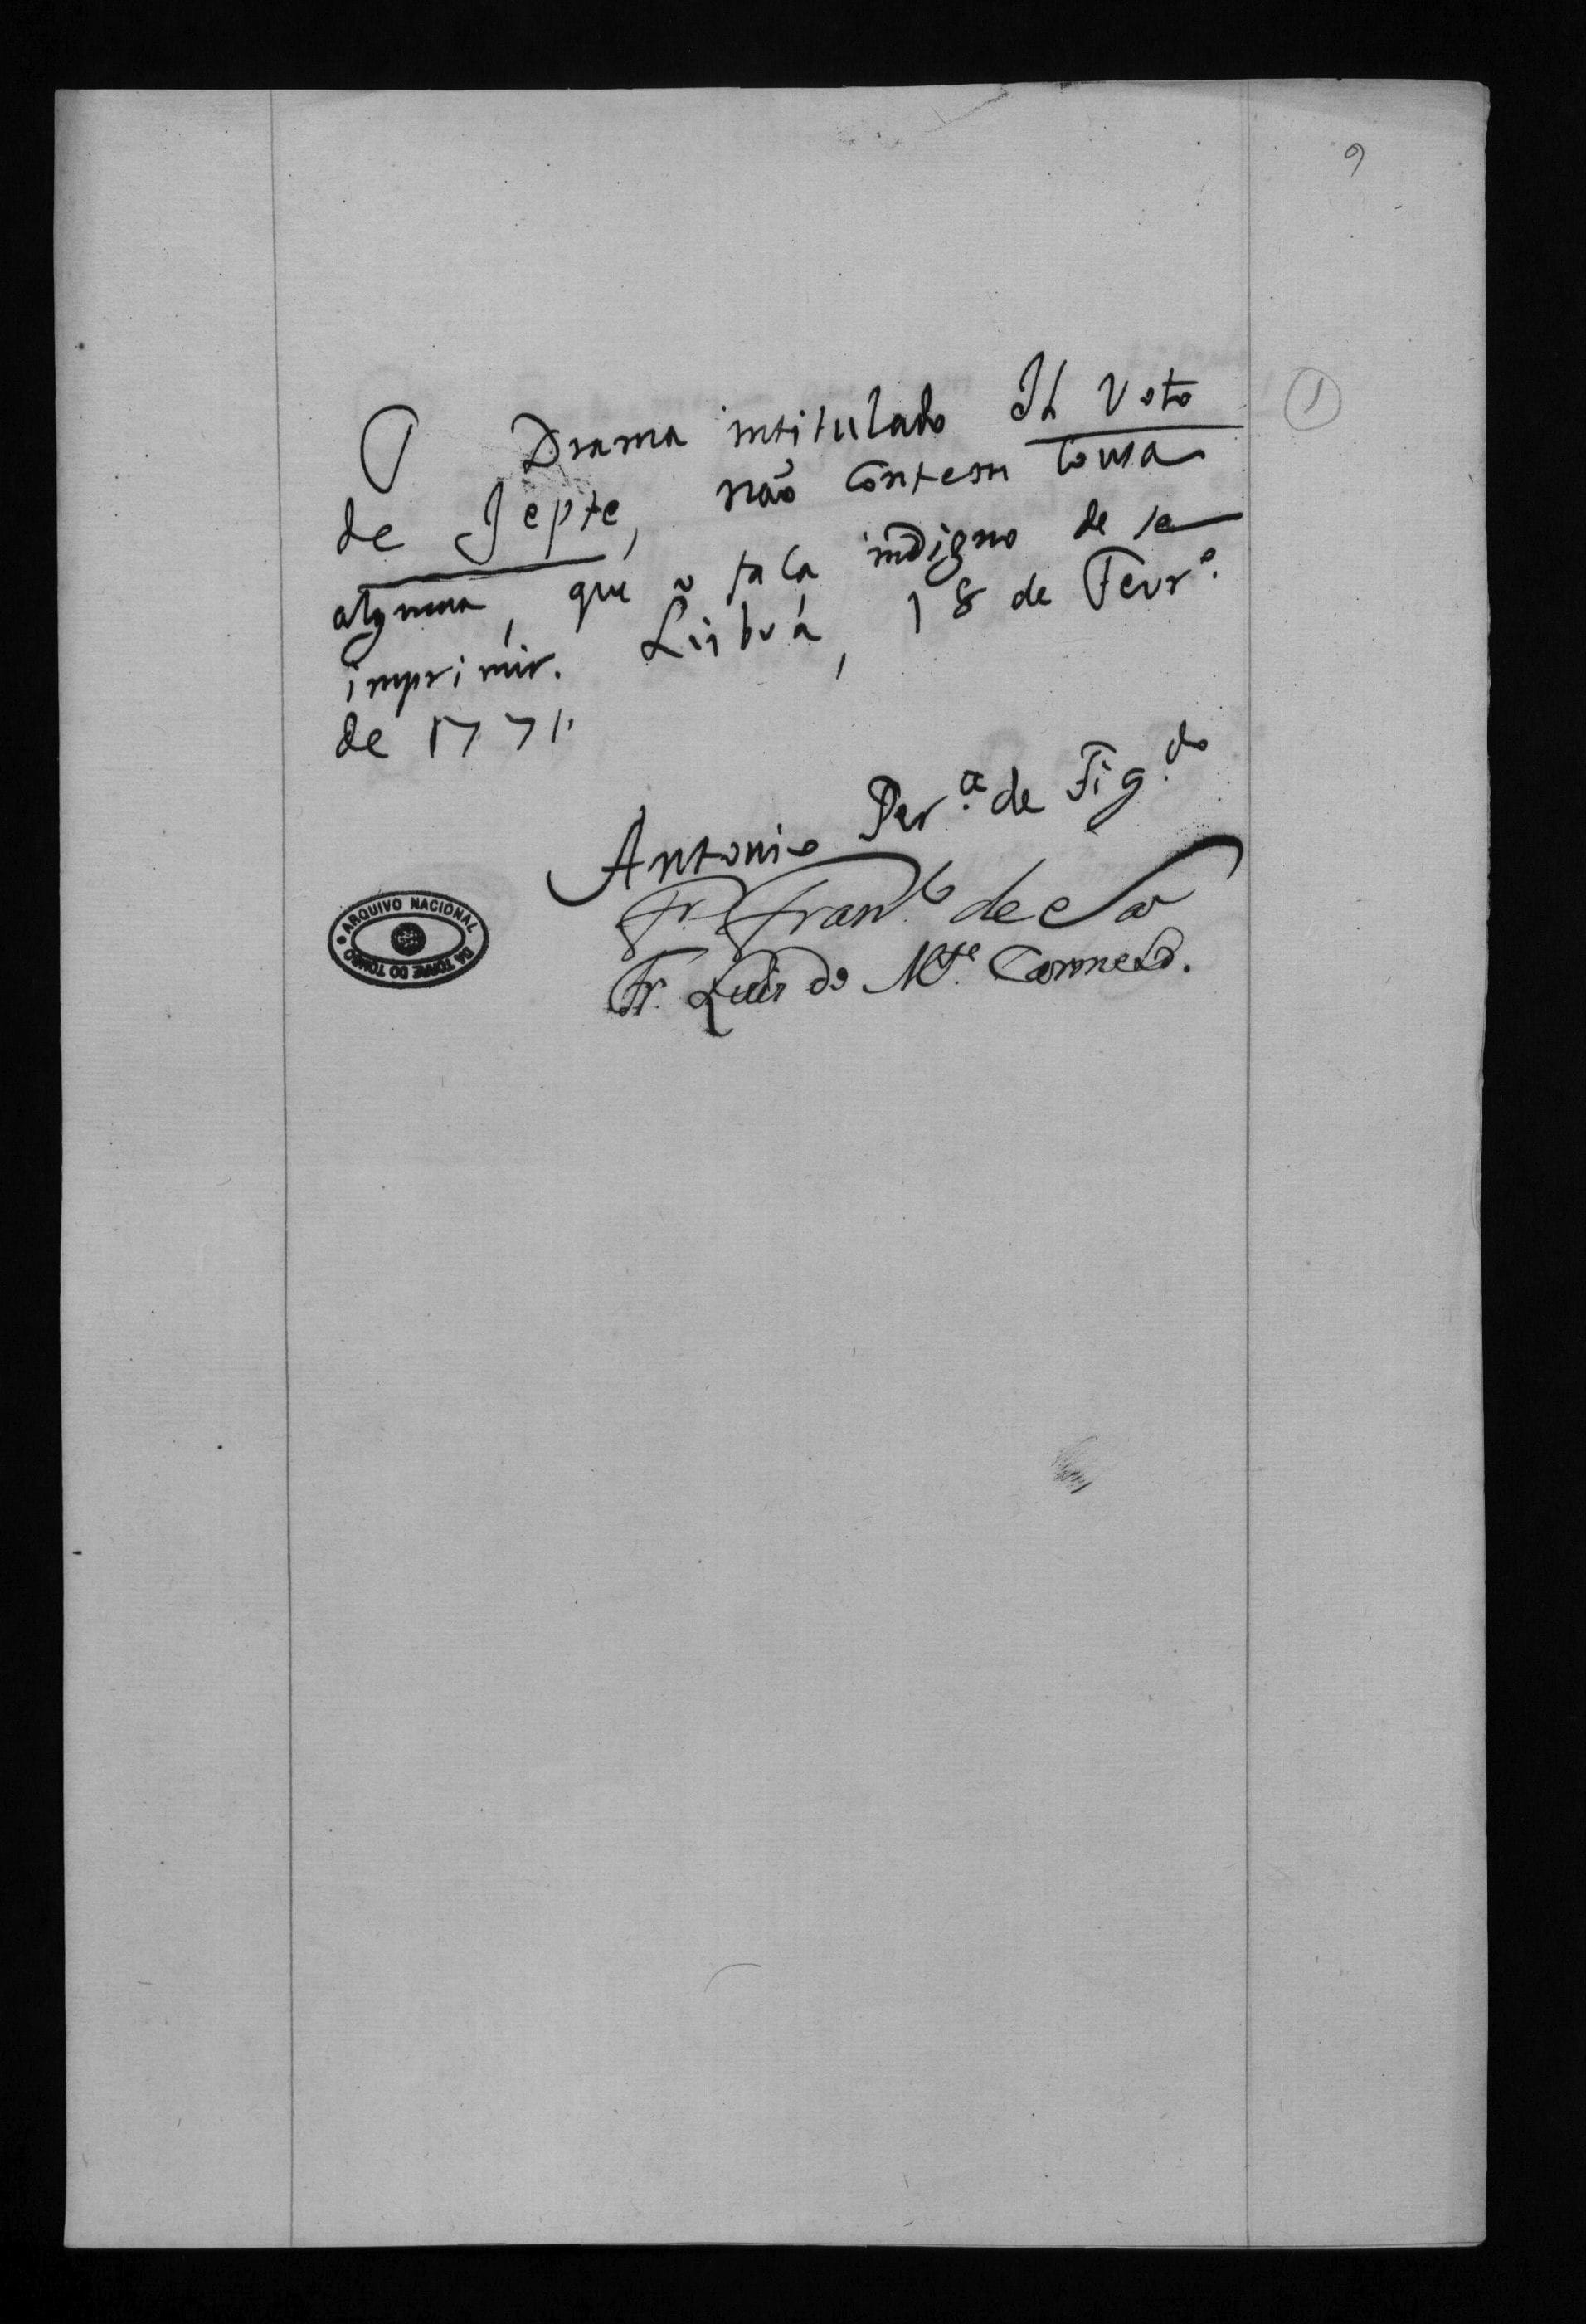 9
1
O Drama intitulado Il Voto
de Jepte, não contem couza
alguma, que o faça indigno de se
imprimir. Lisboa, 18 de Fevr.º
de 1771.
Antonio Per.ª de Fig.do
Fr. Fran.co de Sa
Fr. Luis do Mte. Carmelo.
ARQUIVO NACIONAL
DA TORRE DO TOMBO